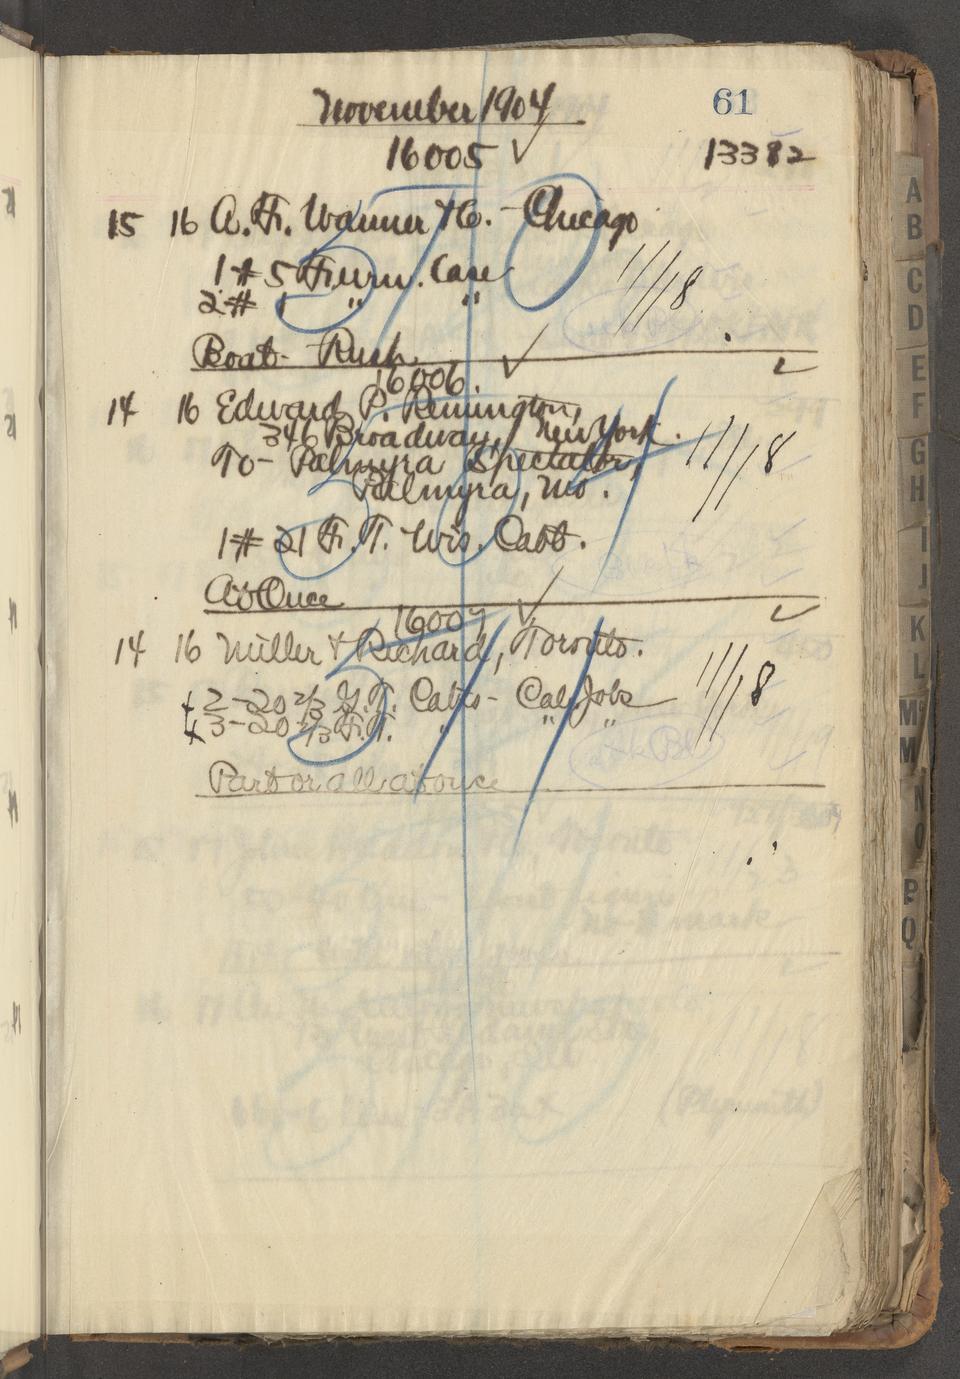 November 1904
61
16005 ✓
13382
15 16 A. F. Wanner & Co. - Chicago
1 # 5 Furn. Case
2 # 1 " "
11/18
Boat - Rush ✓
16006
14 16 Edward P. Remington,
346 Broadway, New York.
To - Palmyra Spectator,
Palmyra, Mo.
11/18
1 # 21 F. T. Wis. Cabt.
At Once
16007 ✓
14 16 Miller & Richard, Toronto.
2 - 20 2/3 G.T. Cabts - Cal. Jobs
3 - 20 2/3 F.T. " " "
11/18
Part or all at once
A
B
C
D
E
F
G
H
I
J
K
L
Mc
M
N
O
P
Q